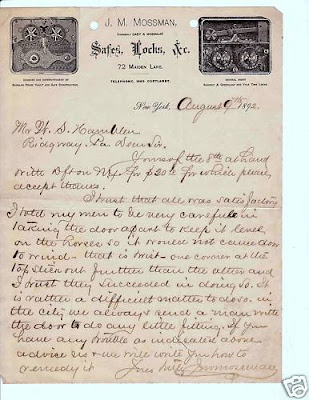 J. M. MOSSMAN,
Safes, Locks, &c.
72 MAIDEN LANE,
TELEPHONE, 1263 CORTLANDT.
New York, August 9th 1892
Mr W. S. Hamblen
Ridgway, Pa Dear Sir
Yours of the 8th at hand
with Dft on N.Y. for $20.00 for which please
accept thanks.
I trust that all was satisfactory
I told my men to be very careful in
taking the door apart to keep it level
on the horses so it would not cause door
to wind - that is twist - one corner at the
top stick out further than the other and
I trust they succeeded in doing so. It
is rather a difficult matter to do so. in
the city we always send a man with
the door to do any little fitting. If you
have any trouble as indicated above
advise us & we will write you how to
remedy it Yours truly J M Mossman